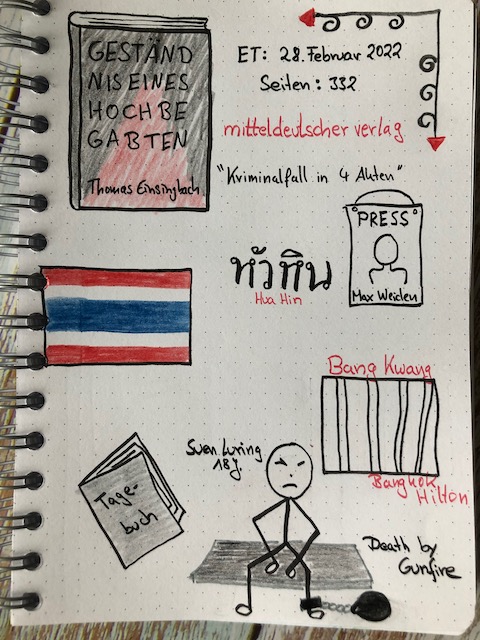 GESTÄND
NIS EINES
HOCHBE
GABTEN
Thomas Einsingbach
ET: 28. Februar 2022
Seiten: 332
mitteldeutscher verlag
"Kriminalfall in 4 Akten"
"PRESS"
Max Weiden
หัวหิน
Hua Hin
Bang Kwang
Bangkok
Hilton
Tage-
buch
Sven Luring
18 J.
Death by
Gunfire